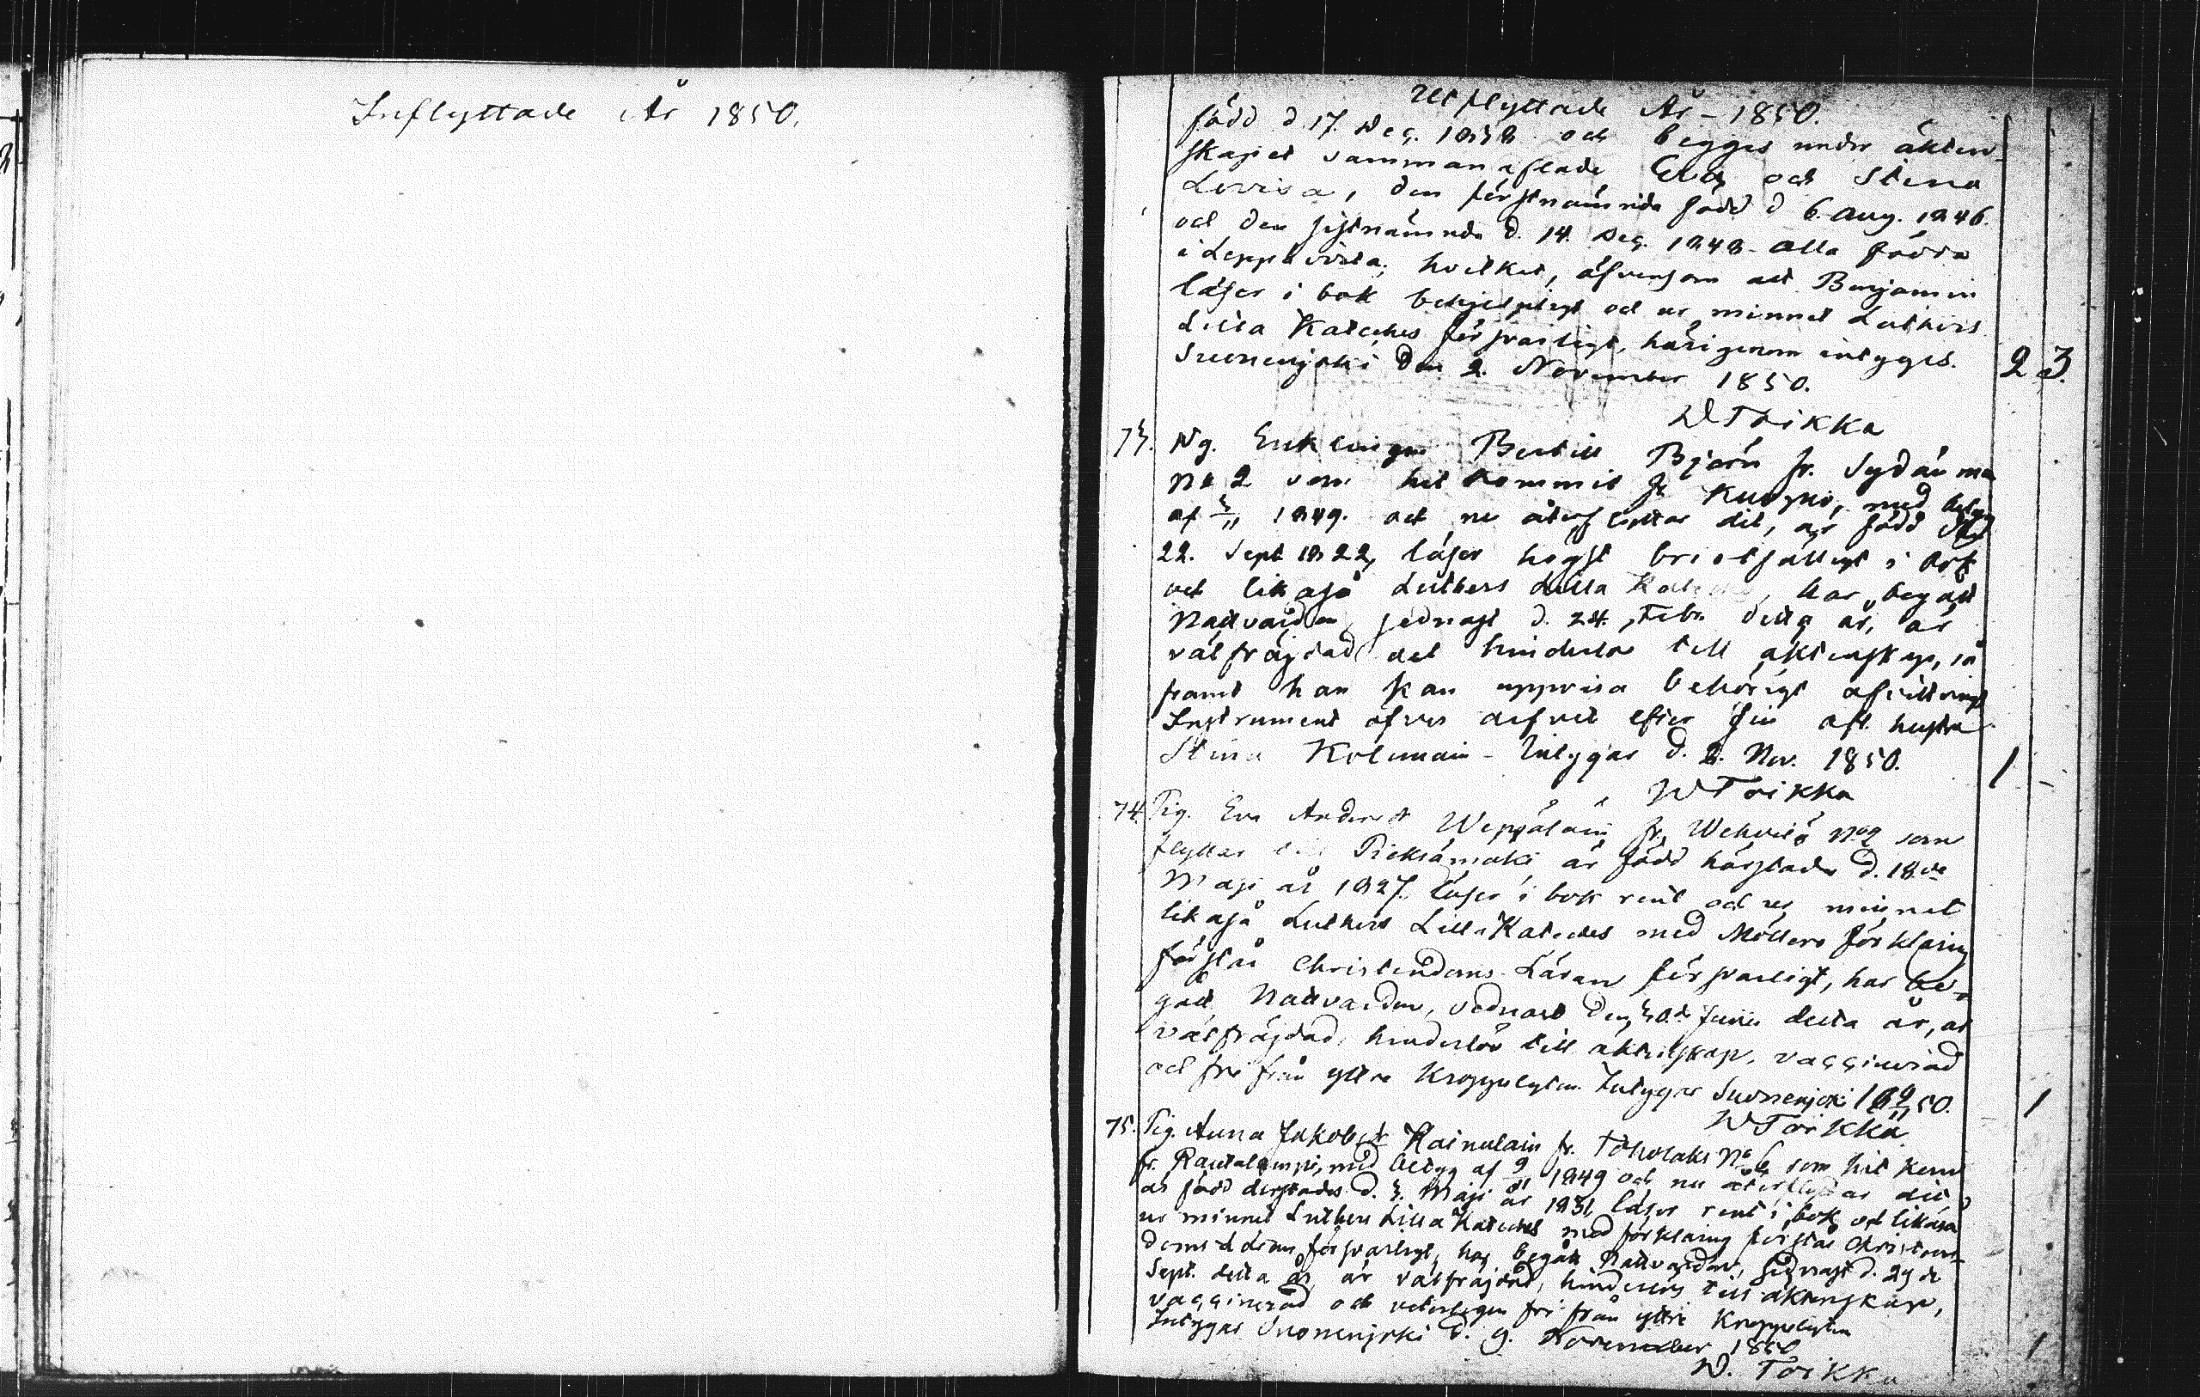 Inflyttade År 1850.
Utflyttade År - 1850.
född d 17. Dec. 1838 och begges under äkten-
skapet sammanaflade Eva och Stina
Lovisa, den förstnämnda född d 6. Aug. 1846.
och den sistnämnda d. 14. Dec. 1848 - alla födda
i Leppävirta; hvilket, äfvensom att Benjamin
läser i bok behjelpligt och ur minnet Luthers
Lilla Kateches försvarligt, härigenom intygges.
Suonenjoki den 2. November 1850. 2 3.
W Toikka
73. Ng. Enklingen Bertill Björn fr. Sydänma
No 2 som hit kommit fr Kuopio, med betyg
af 1849. och nu återflyttar dit, är född
22. Sept 1822, läser högst bristfälligt i bok
och likaså Luthers Lilla Kateches, har begått
Nattvarden sednast d. 24. Febr detta år, är
välfräjdad och hinderlös till äktenskap, så
framt han kan uppvisa behörigt afvittrings
Instrument öfver arfvet efter sin afl. hustru
Stina Kolemain - Intygar d. 2. Nov. 1850. 1 -
W Toikka
74. Pig. Eva Andersdr Weppäläin fr. Wehvilä No 2 som
flyttar till Pieksämäki är född härstädes d. 18de
Maji år 1827. läser i bok rent och ur minnet
likaså Luthers Lilla Kateches med Möllers förklaring
förstår Christendoms Läran försvarligt, har be-
gått Nattvarden, sednast den 30de Junii detta år, är
välfräjdad, hinderlös till äktenskap, vaccinerad
och fri från yttre Kroppslyten Intygar Suonenjoki 18 50. - 1
W Toikka
75. Pig. Anna Jakobsdr Kainulain fr. Toholaks No 6 som hit kom
fr. Rautalampi, med betyg af 1849 och nu återflyttar dit
är född derstädes d. 3. Maji år 1831, läser rent i bok och likaså
ur minnet Luthers Lilla Kateches med förklaring förstår Christen-
doms Läran försvarligt, har begått Nattvarden, sednast d. 29de
Sept. detta år, är välfräjdad, hinderlös till äktenskap,
vaccinerad och veterligen fri från yttre Kroppslyten
Intygar Suonenjoki d. 9. November 1850 1
W. Toikka